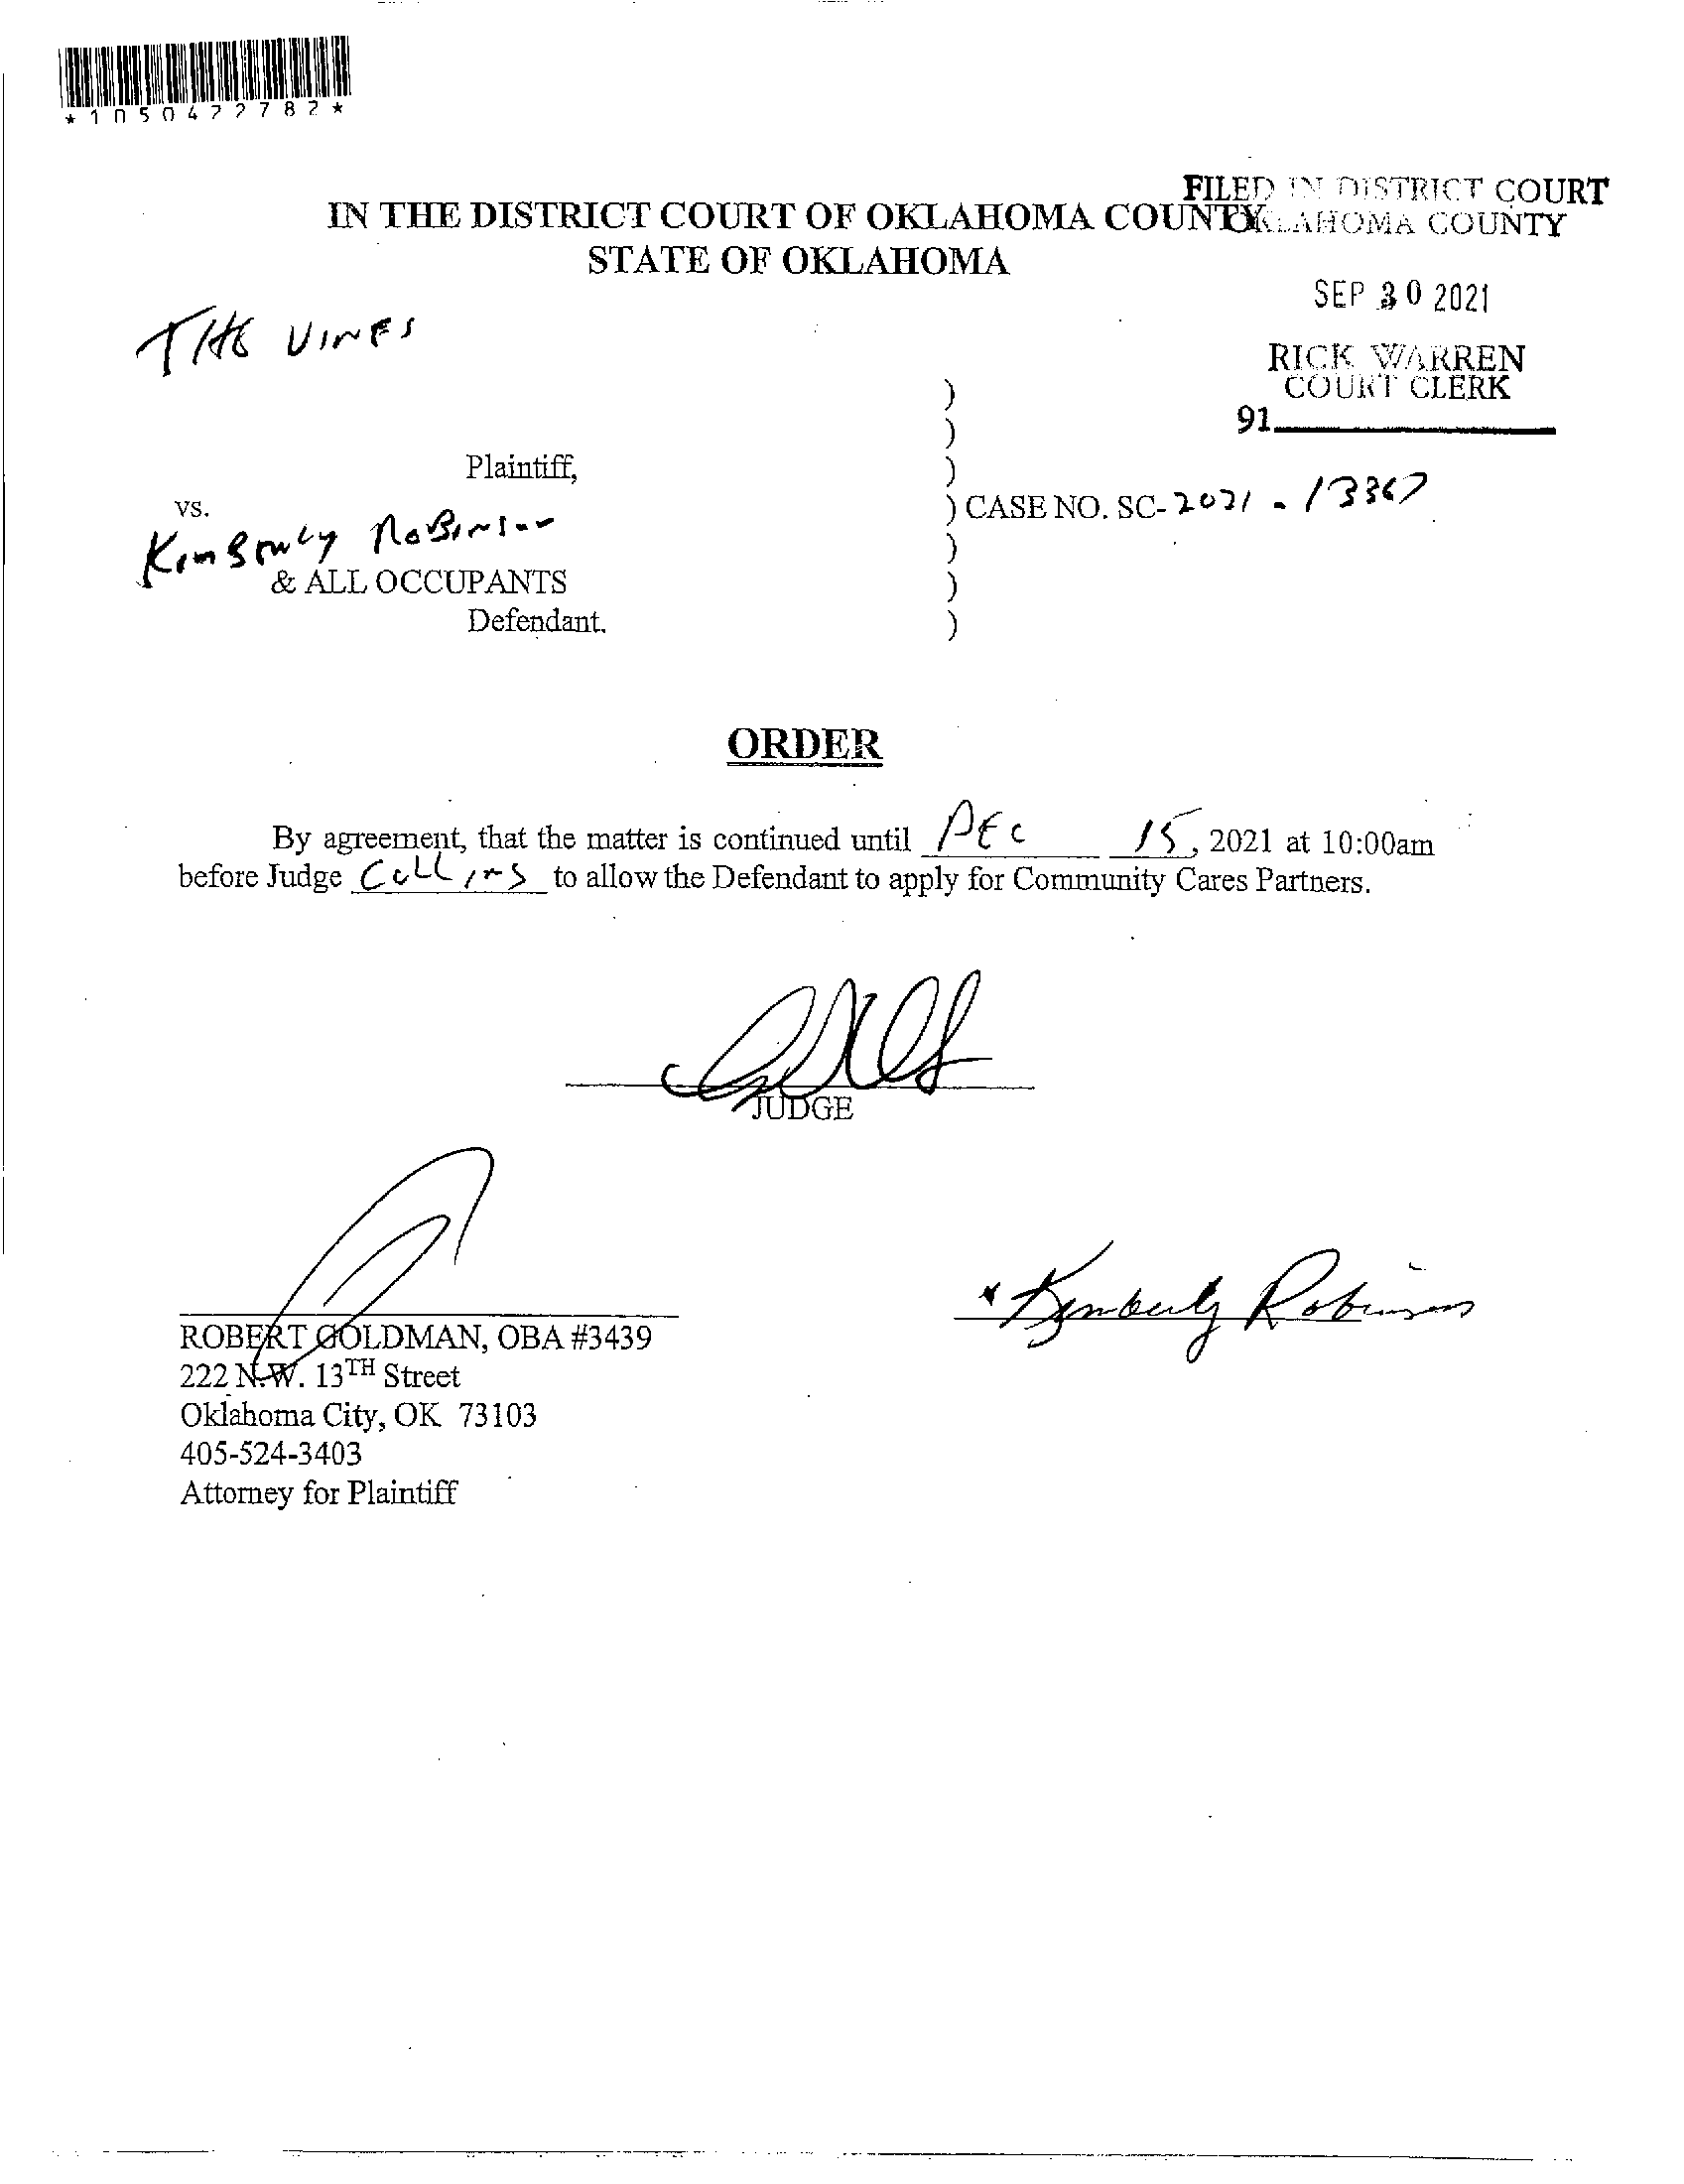 *1050422782*
FILED IN DISTRICT COURT
OKLAHOMA COUNTY
IN THE DISTRICT COURT OF OKLAHOMA COUNTY
STATE OF OKLAHOMA
SEP 30 2021
RICK WARREN
COURT CLERK
91
THE VINES
)
)
Plaintiff, )
vs. ) CASE NO. SC-2021 - 13367
Kimberly Robinson )
& ALL OCCUPANTS )
Defendant. )
ORDER
By agreement, that the matter is continued until DEC 15, 2021 at 10:00am
before Judge Collins to allow the Defendant to apply for Community Cares Partners.
JUDGE
Kimberly Robinson
ROBERT GOLDMAN, OBA #3439
222 N.W. 13TH Street
Oklahoma City, OK 73103
405-524-3403
Attorney for Plaintiff